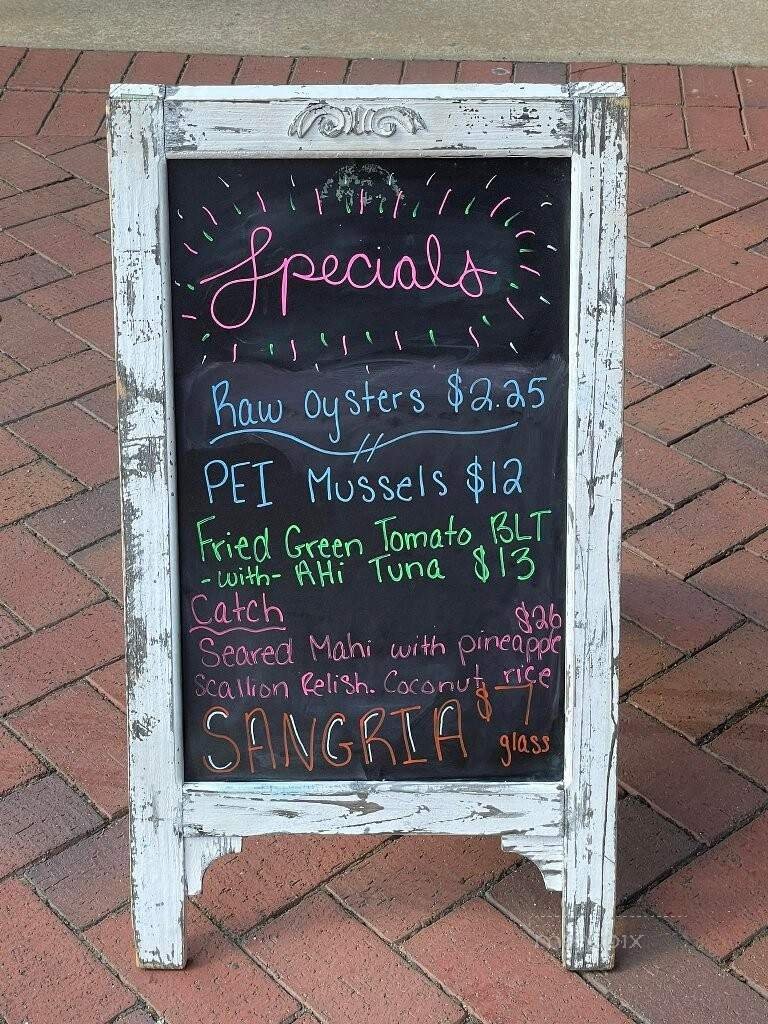 Specials
Raw Oysters $2.25
PEI Mussels $12
Fried Green Tomato BLT
-with- AHi Tuna $13
Catch $26
Seared Mahi with pineapple
Scallion Relish. Coconut rice
SANGRIA $7
glass